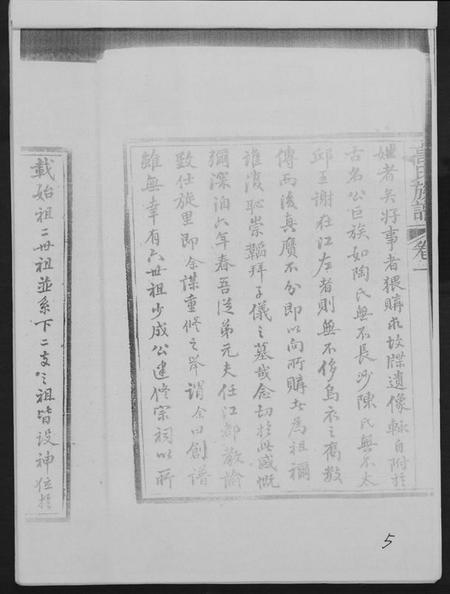 高氏族譜 卷一
姓者矣好事者猥購求故牒遺像輙自附於
古名公巨族如陶氏無不長沙陳氏無不太
邱王謝在江左者則無不侈烏衣之舊數
傳而後真贗不分即以向所購者為祖禰
誰復恥崇韜拜子儀之墓哉念切於此感慨
彌深泊六年春吾從弟元夫任江都教諭
致仕旋里即余謀重修之舉謂余曰創譜
雖無幸有六世祖少成公建修宗祠以所
載始祖二世祖並系下二支之祖皆設神位於
5